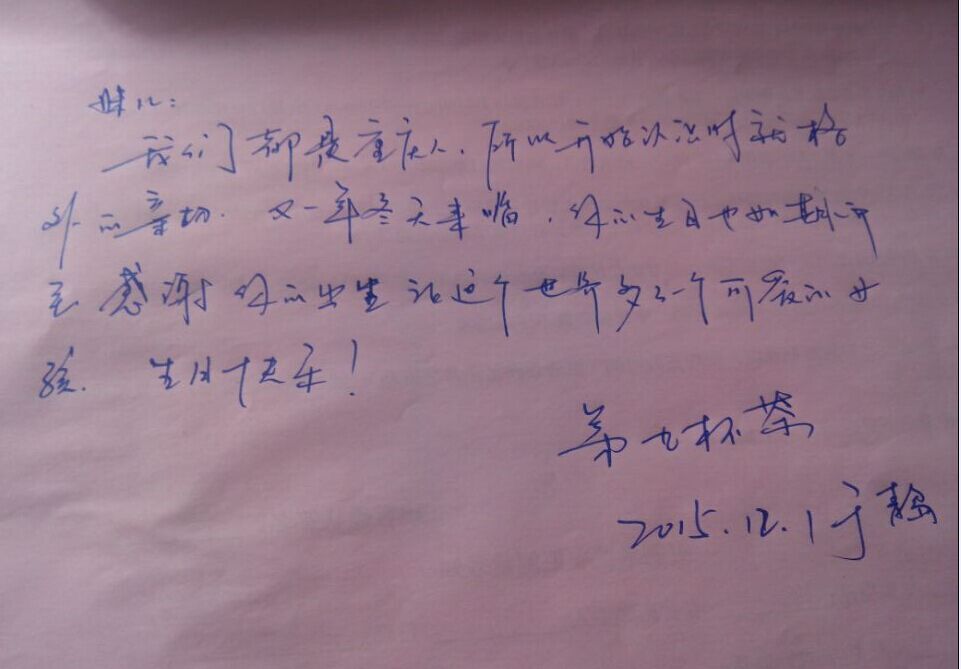 妹儿：
我们都是重庆人，所以开始认识时就格
外的亲切．又一年冬天来临，你的生日也如期而
至 感谢你的出生 让这个世界多了一个可爱的女
孩． 生日快乐！
第七杯茶
2015.12.1于青岛